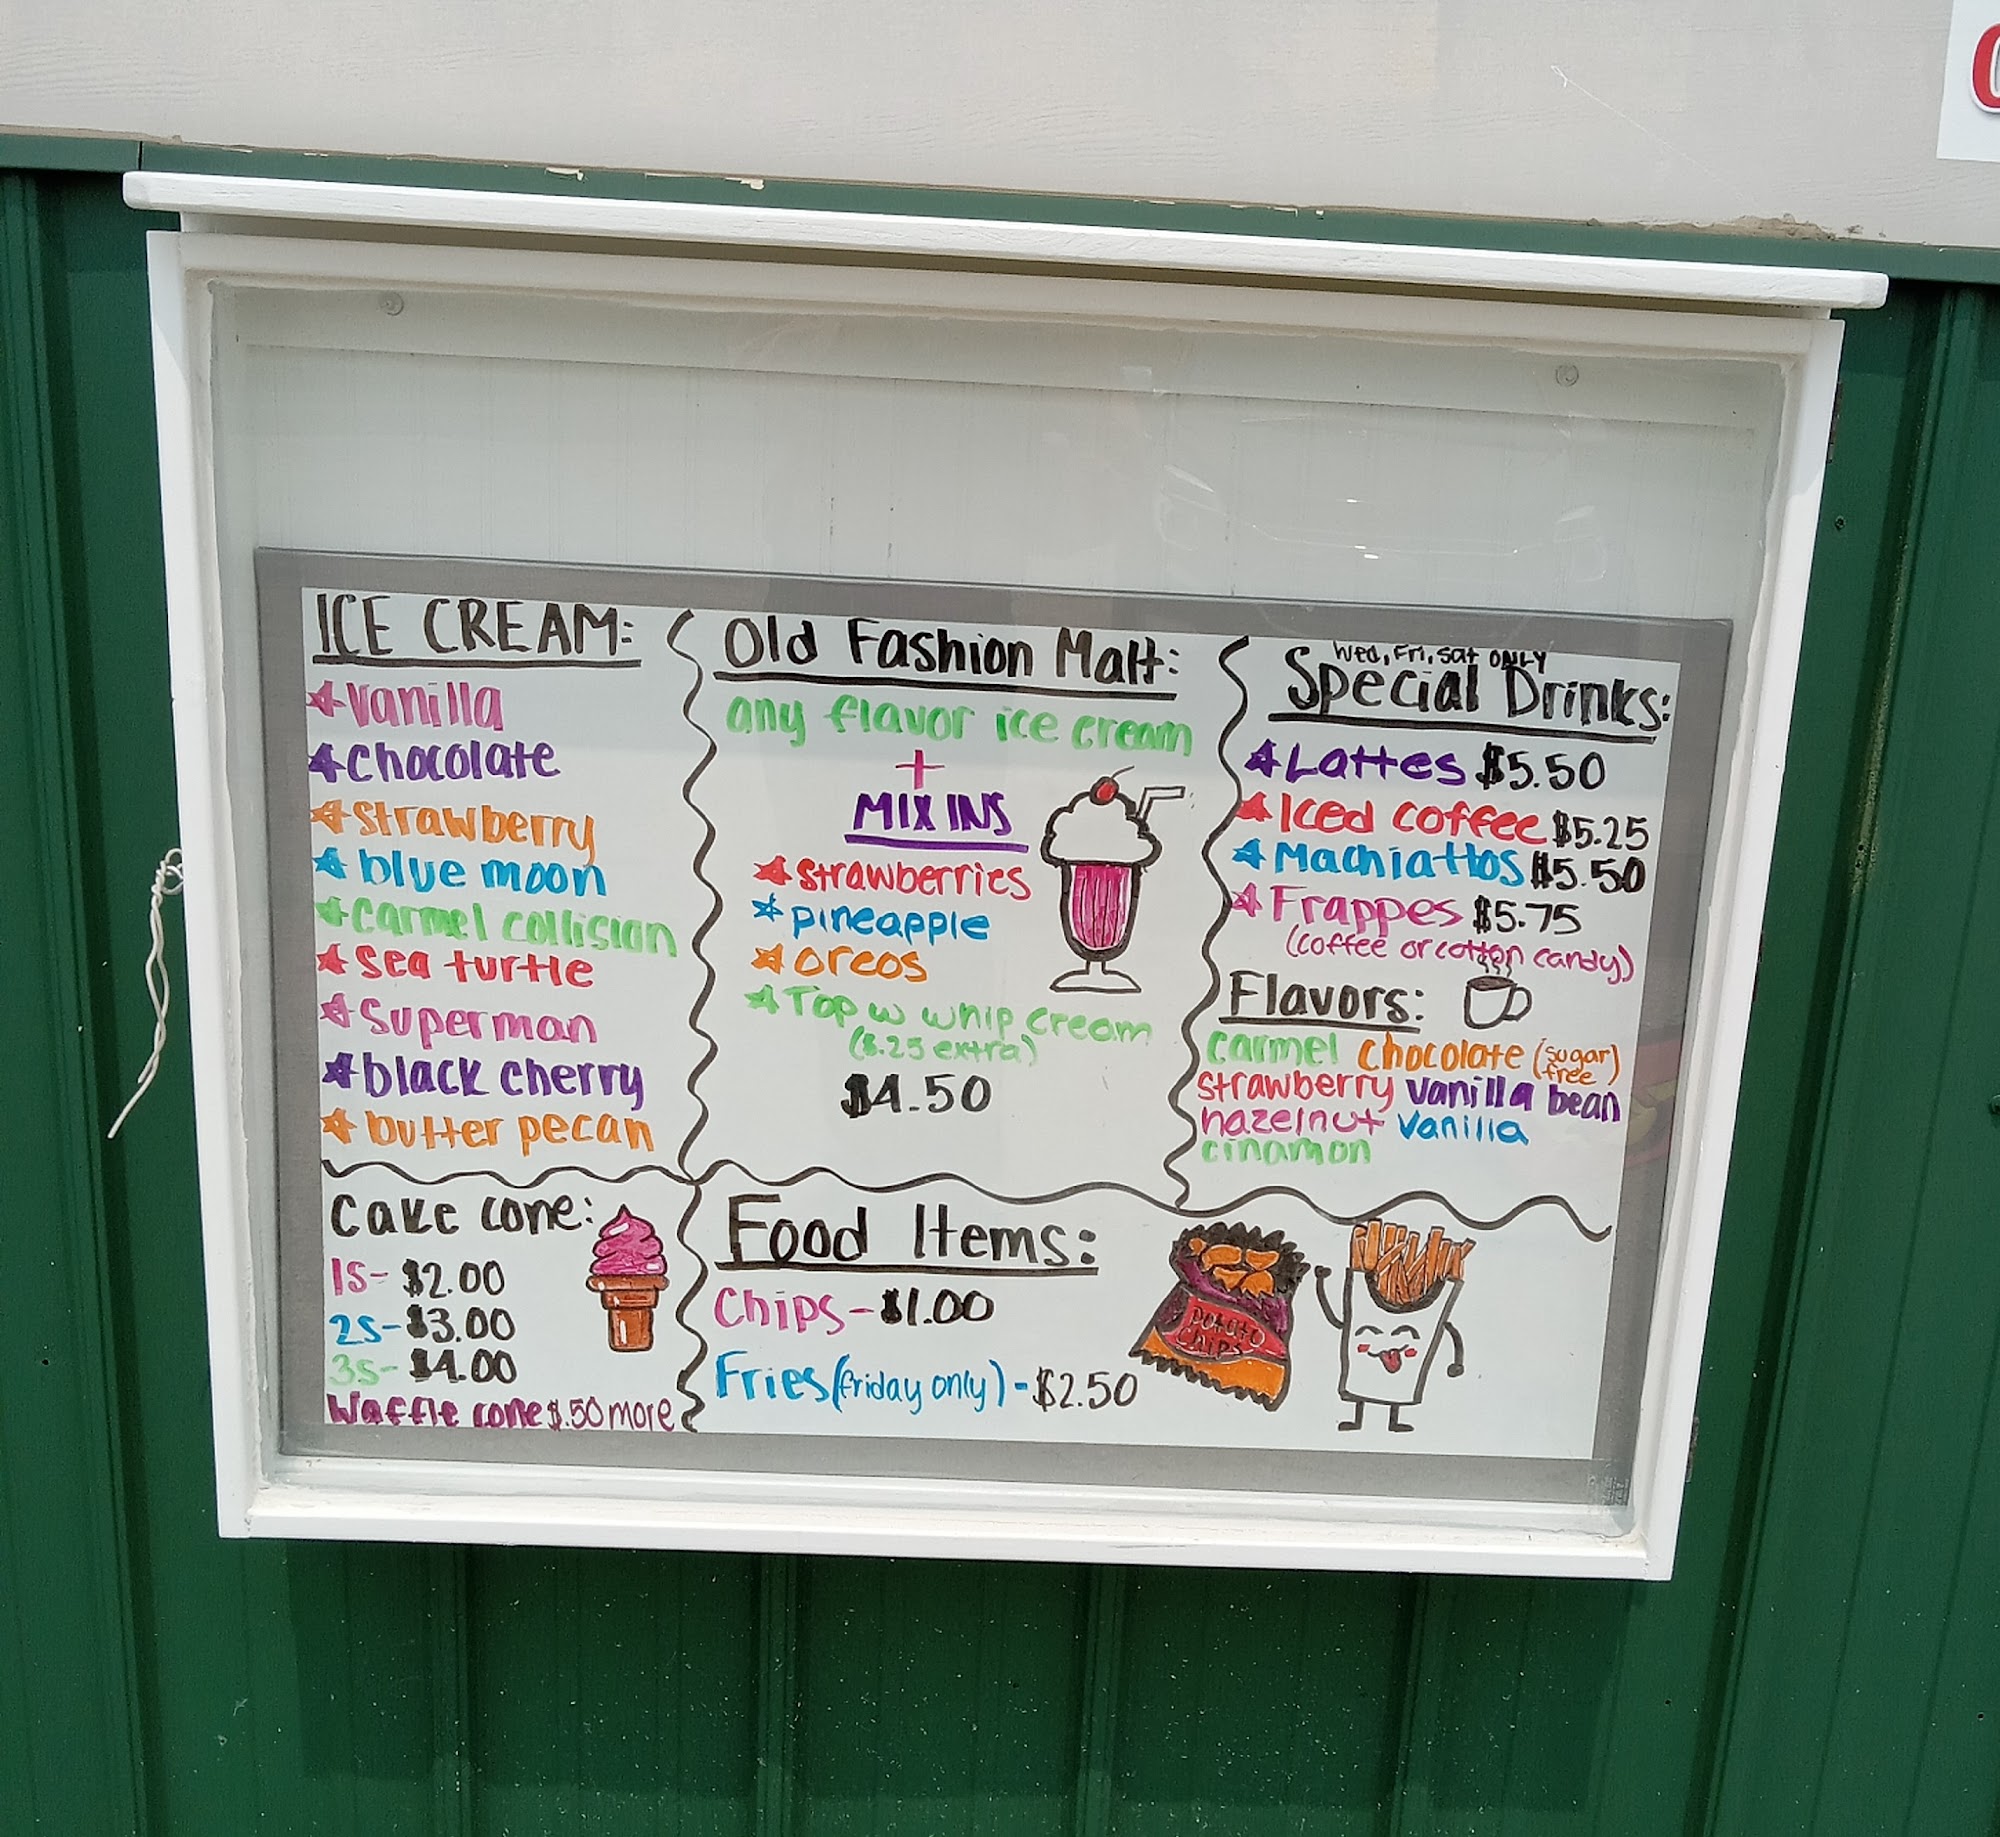 ICE CREAM:
Vanilla
chocolate
strawberry
blue moon
Carmel collision
Sea turtle
Superman
black cherry
butter pecan
Cake cone:
1s- $2.00
2s- $3.00
3s- $4.00
Waffle cone $.50 more
Old Fashion Malt:
any flavor ice cream
+
MIX INS
strawberries
pineapple
oreos
Top w whip cream
($.25 extra)
$4.50
Wed, Fri, Sat ONLY
Special Drinks:
Lattes $5.50
Iced coffee $5.25
Machiattos $5.50
Frappes $5.75
(coffee or cotton candy)
Flavors:
carmel chocolate (sugar free)
strawberry vanilla bean
hazelnut vanilla
cinamon
Food Items:
Chips - $1.00
Fries (friday only) - $2.50
potato
chips